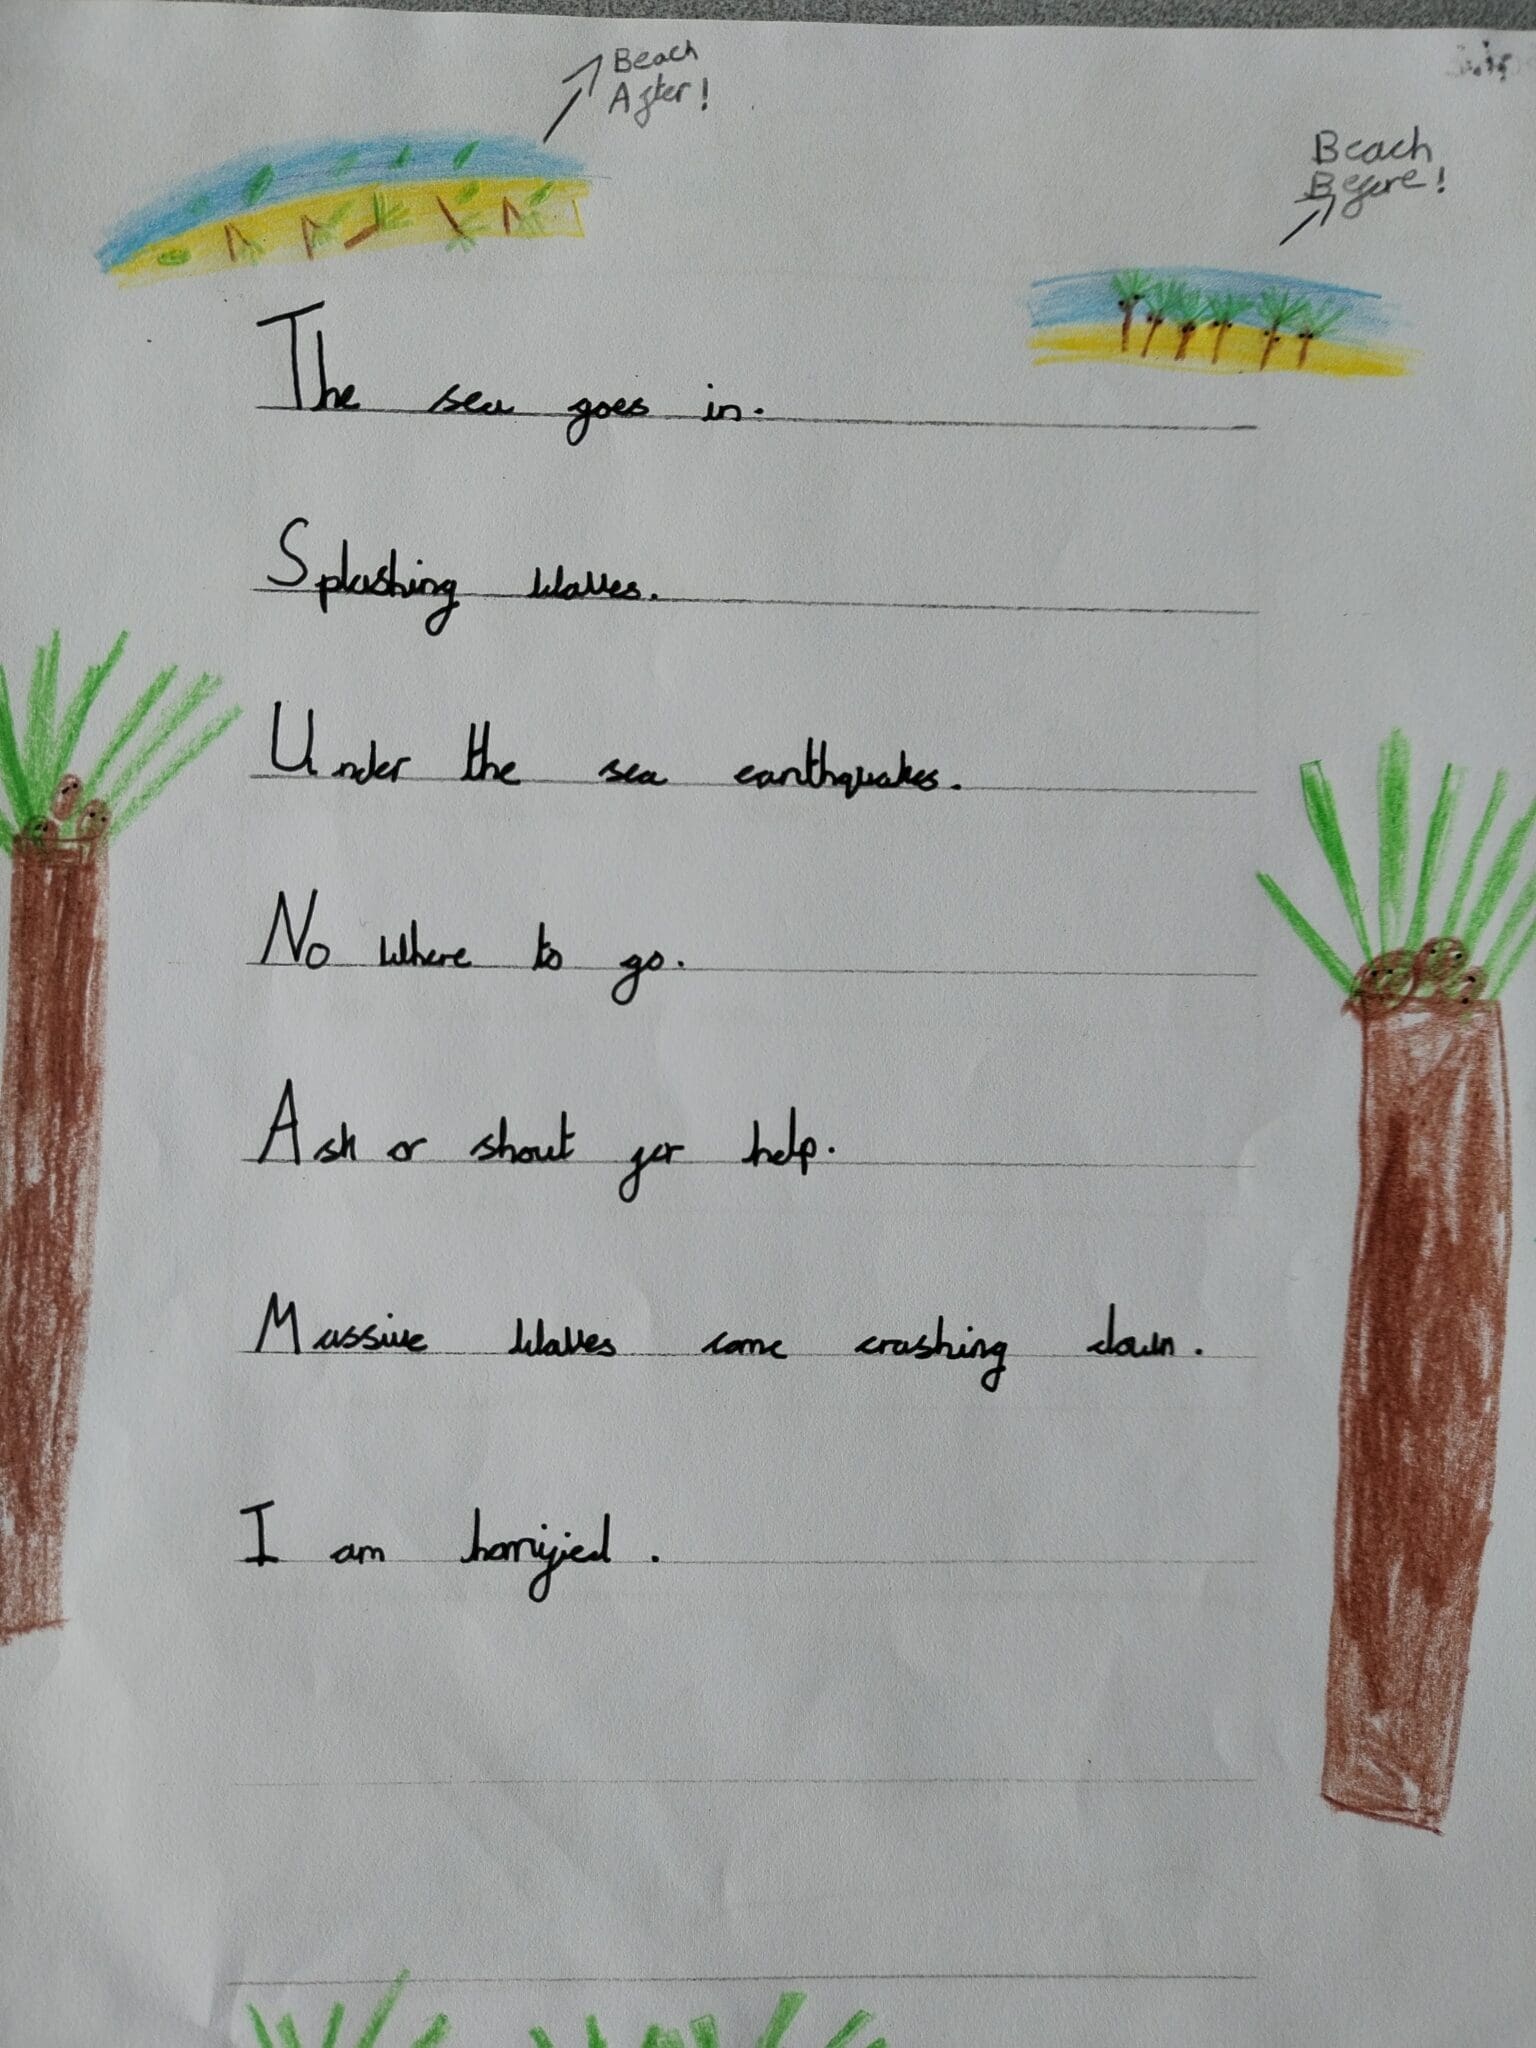 Beach
After!
Beach
Before!
The sea goes in.
Splashing waves.
Under the sea earthquakes.
No where to go.
Ask or shout for help.
Massive waves come crashing down.
I am horrified.